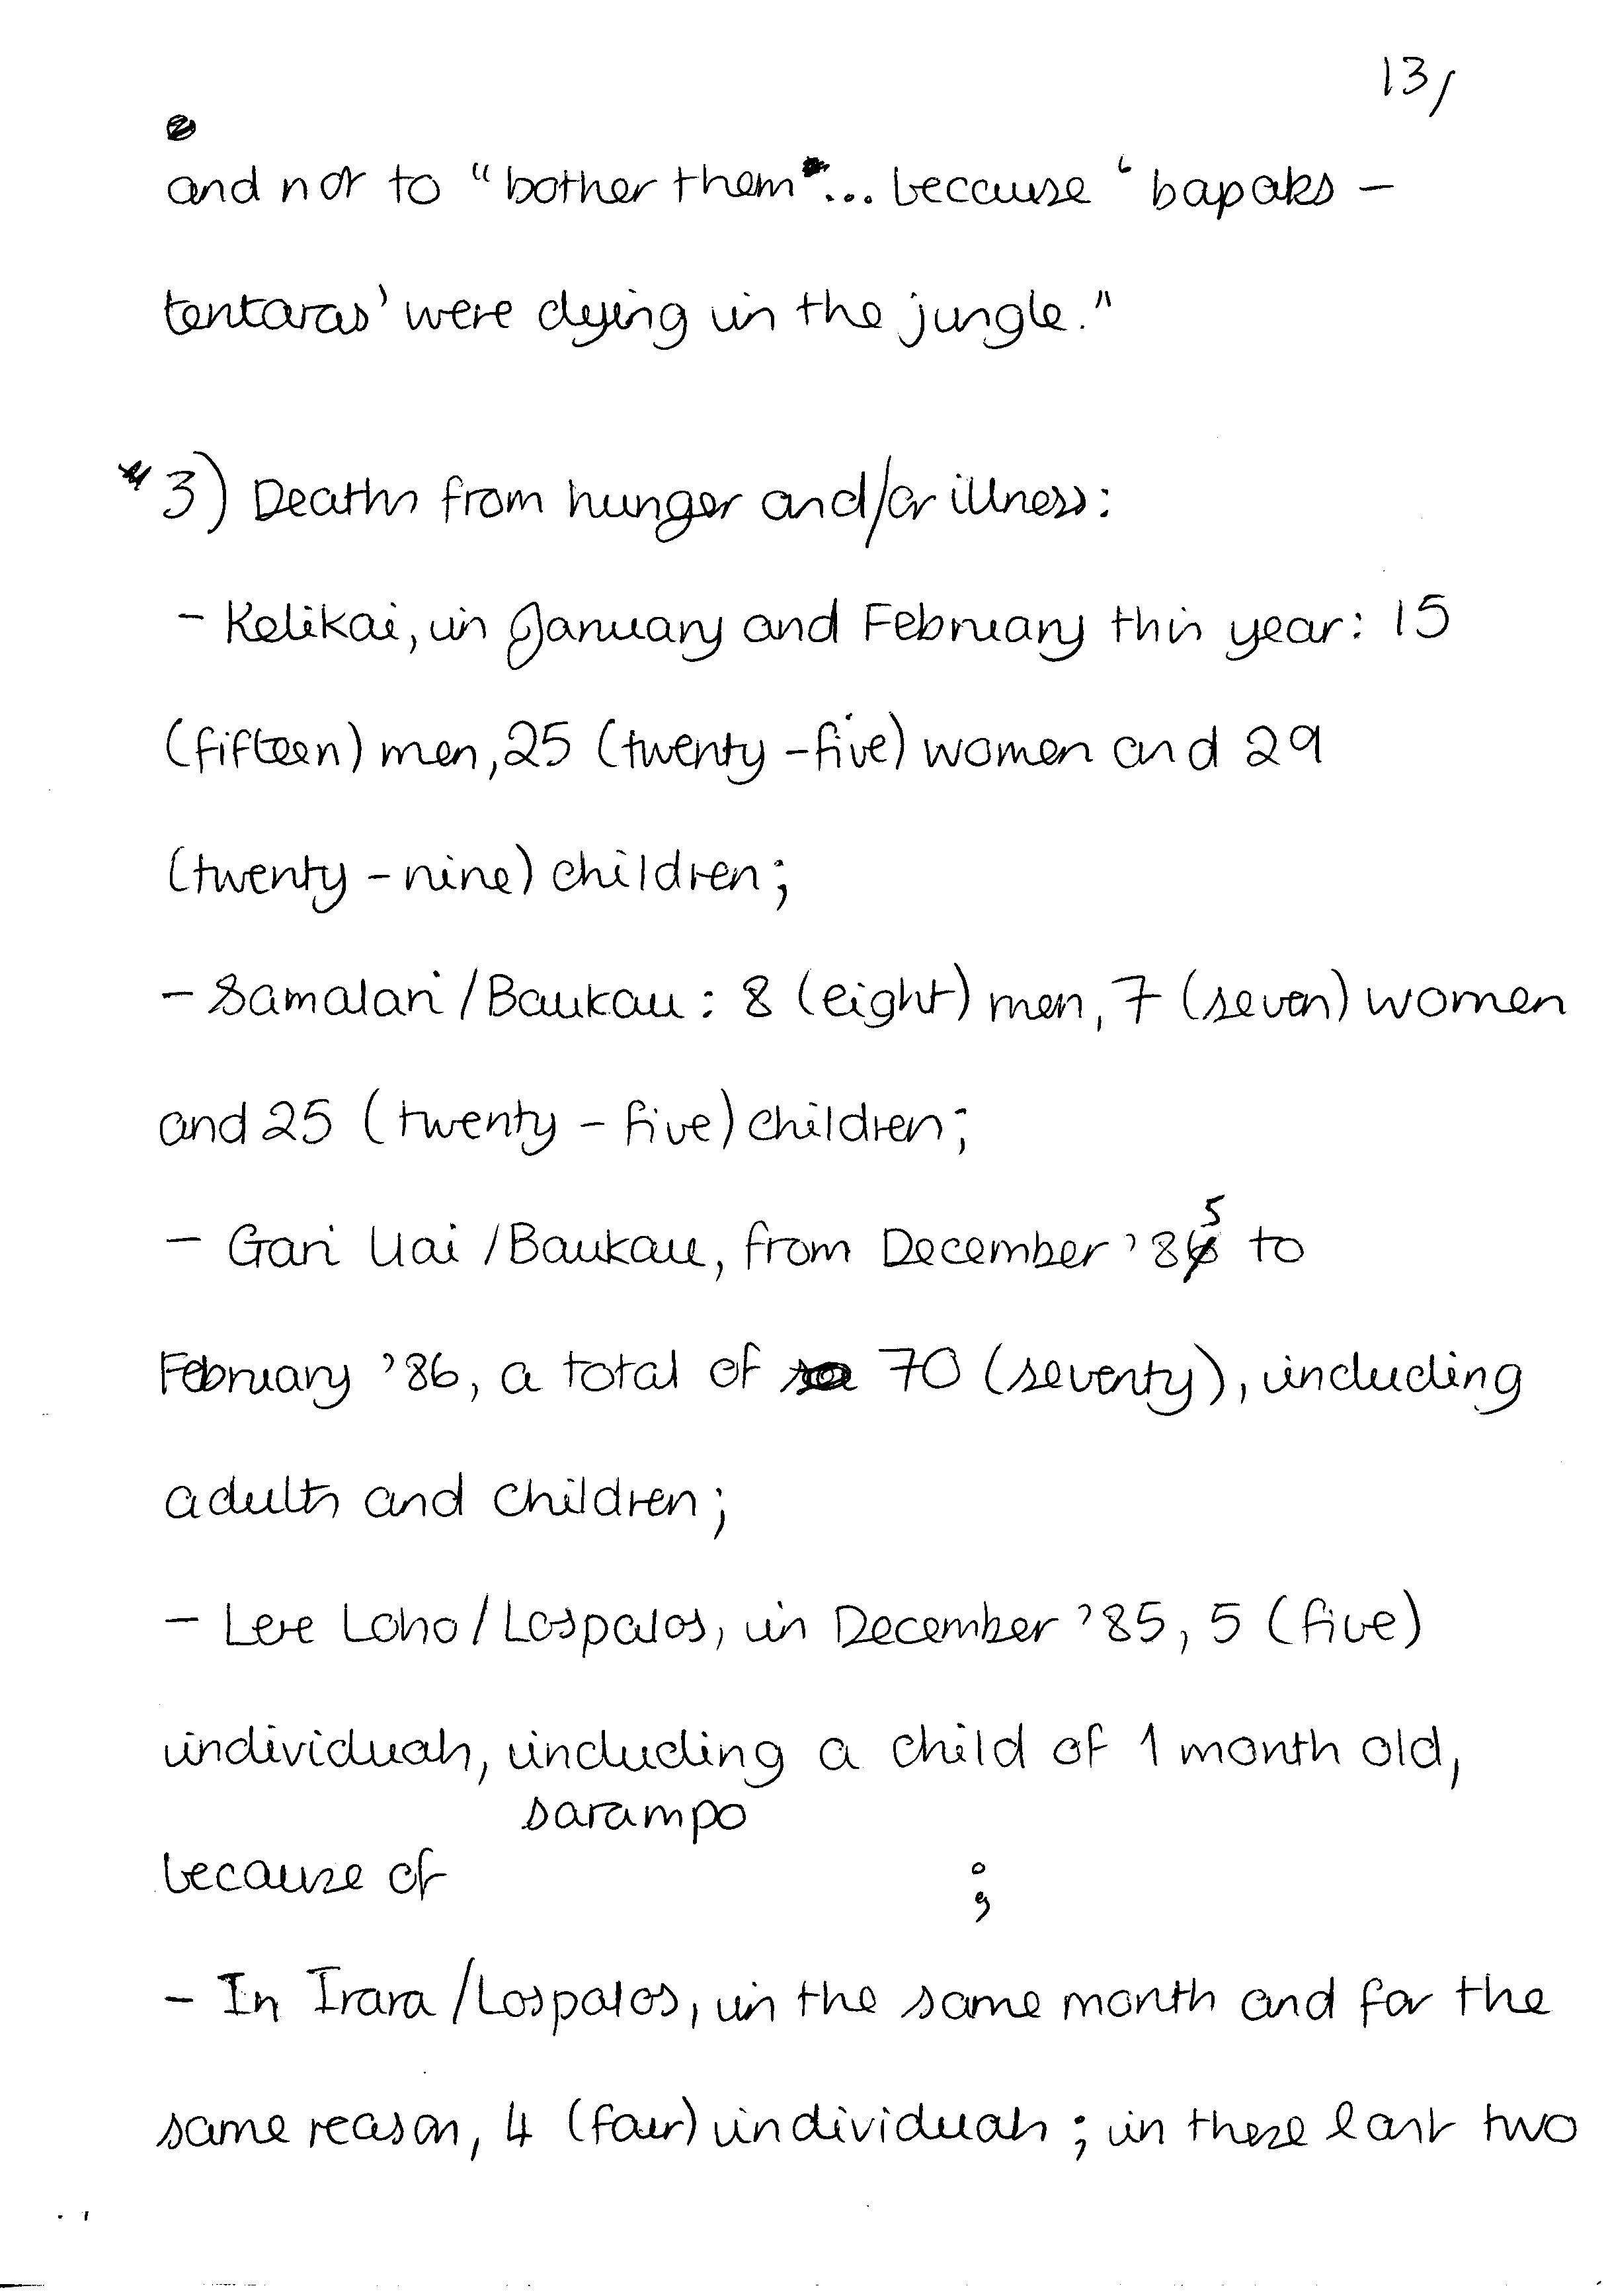 13/
and not to "bother them"... because 'bapaks -
tentaras' were dying in the jungle."
* 3) Deaths from hunger and/or illness:
- Kelikai, in January and February this year: 15
(fifteen) men, 25 (twenty-five) women and 29
(twenty-nine) children;
- Samalari/Baukau: 8 (eight) men, 7 (seven) women
and 25 (twenty-five) children;
- Gari Uai/Baukau, from December '85 to
February '86, a total of 70 (seventy), including
adults and children;
- Lere Loho/Lospalos, in December '85, 5 (five)
individuals, including a child of 1 month old,
because of sarampo ;
- In Irara/Lospalos, in the same month and for the
same reason, 4 (four) individuals; in these last two